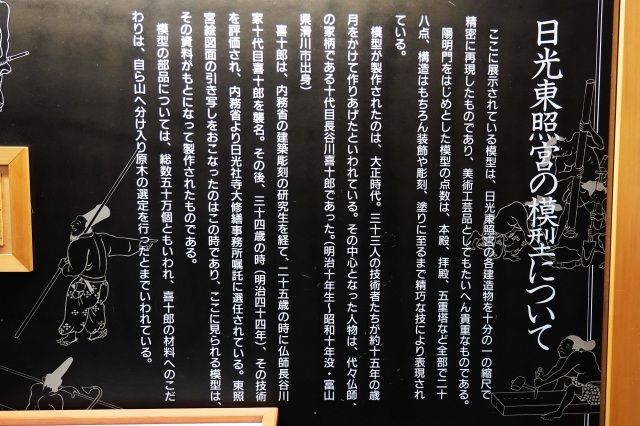 日光東照宮の模型について
ここに展示されている模型は、日光東照宮の各建造物を十分の一の縮尺で
精密に再現したものであり、美術工芸品としてもたいへん貴重なものである。
陽明門をはじめとした模型の点数は、本殿、拝殿、五重塔など全部で二十
八点、構造はもちろん装飾や彫刻、塗りに至るまで精巧な技により表現され
ている。
模型が製作されたのは、大正時代。三十三人の技術者たちが約十五年の歳
月をかけて作りあげたといわれている。その中心となった人物は、代々仏師
の家柄である十代目長谷川喜十郎であった。(明治十年生〜昭和十年没・富山
県滑川市出身)
喜十郎は、内務省の建築彫刻の研究生を経て、二十五歳の時に仏師長谷川
家十代目喜十郎を襲名。その後、三十四歳の時(明治四十四年)、その技術
を評価され、内務省より日光社寺大修繕事務所嘱託に選任されている。東照
宮絵図面の引き写しをおこなったのはこの時であり、ここに見られる模型は、
その資料がもとになって製作されたものである。
模型の部品については、総数五十万個ともいわれ、喜十郎の材料へのこだ
わりは、自ら山へ分け入り原木の選定を行ったとまでいわれている。